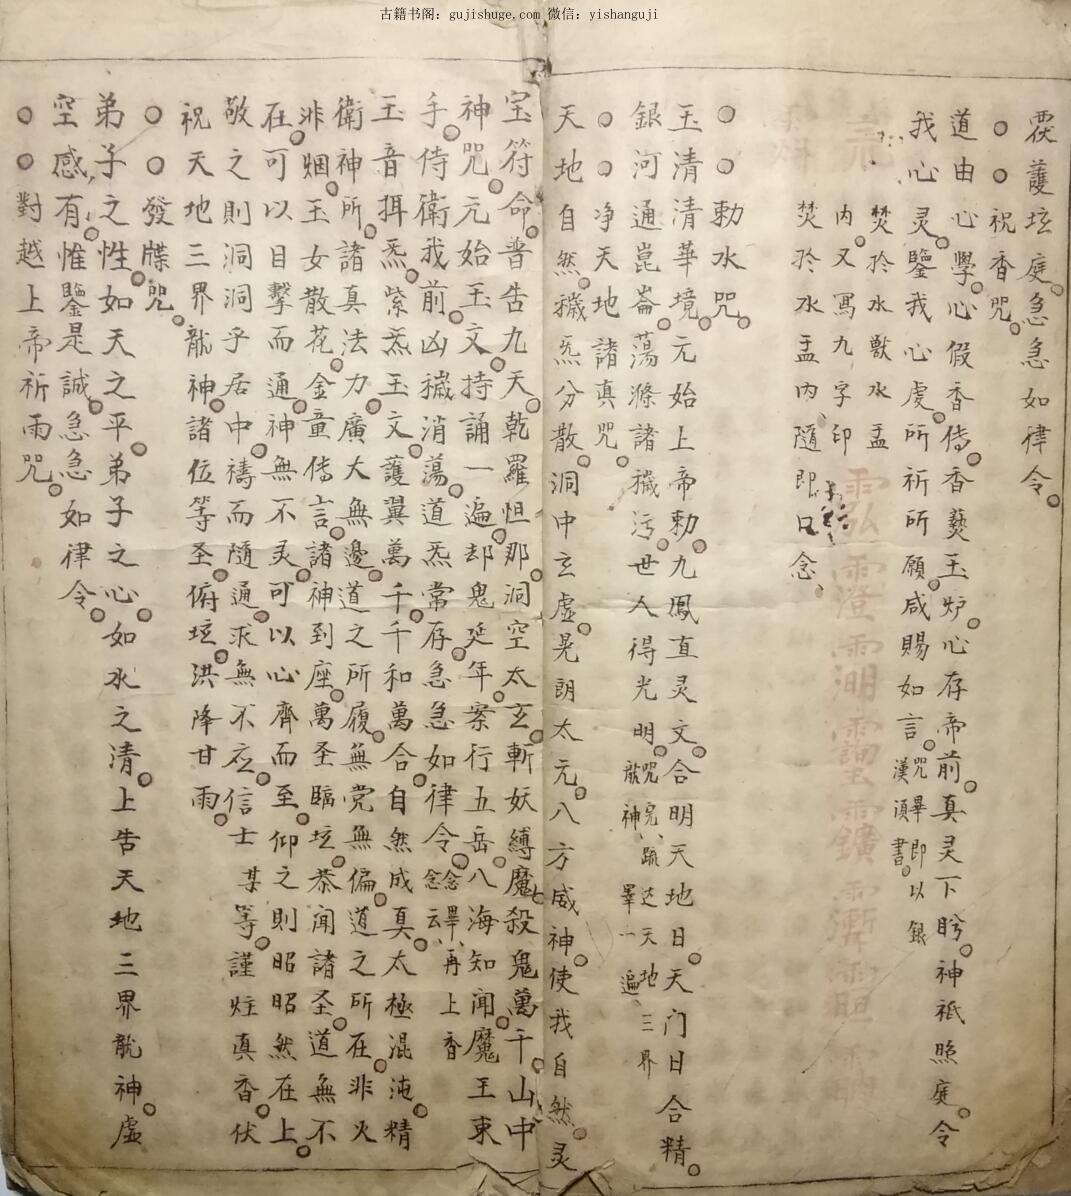 古籍书阁：gujishuge.com 微信：yishanguji
覆護坛庭急急如律令
○○祝香咒
道由心學心假香传香爇玉炉心存帝前真灵下盻神祇照庭令
我心灵鑒我心虔所祈所願咸賜如言咒畢即以銀
漢湏書
焚於水獸水盂
内又冩九字印
焚於水盂内随即口念
○○勅水咒
玉清清華境元始上帝勅九鳳直灵文合明天地日天门日合精
銀河通崑崙蕩滌諸穢污世人得光明咒完疏达天地三界
龍神畢一遍
○○净天地諸真咒
天地自然穢炁分散洞中玄虛晃朗太元八方威神使我自然灵
宝符命普告九天乾羅怛那洞空太玄斬妖縛魔殺鬼萬千山中
神咒元始玉文持誦一遍却鬼延年案行五岳八海知聞魔王束
手侍衛我前凶穢消蕩道炁常存急急如律令念畢再上香
念云
玉音揖炁紫炁玉文護翼萬千千和萬合自然成真太極混沌精
衛神所諸真法力廣大無邊道之所履無党無偏道之所在非火
非烟玉女散花金童传言諸神到座萬圣臨坛恭闻諸圣道無不
在可以目擊而通神無不灵可以心齊而至仰之則昭昭然在上
敬之則洞洞乎居中禱而隨通求無不应信士某等謹炷真香伏
祝天地三界龍神諸位等圣俯坛洪降甘雨
○○發牒咒
弟子之性如天之平弟子之心如水之清上告天地三界龍神虛
空感有惟鑒是誠急急如律令
○○對越上帝祈雨咒